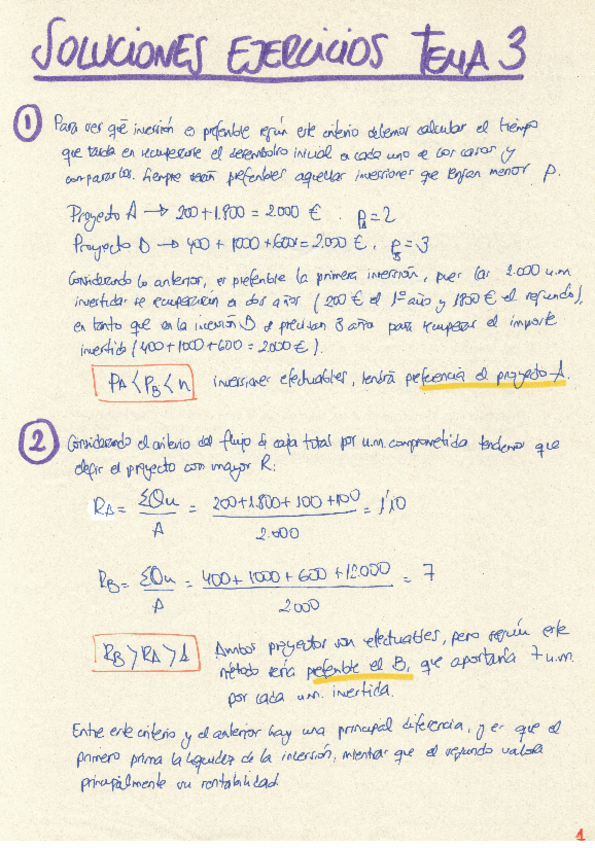 SOLUCIONES EJERCICIOS TEMA 3
1 Para ver qué inversión es preferible según este criterio debemos calcular el tiempo
que tarda en recuperarse el desembolso inicial en cada uno de los casos y
compararlos. Siempre serán preferibles aquellas inversiones que tengan menor P.
Proyecto A → 200 + 1.800 = 2.000 €. PA = 2
Proyecto B → 400 + 1000 + 600 = 2.000 €, PB = 3
Considerando lo anterior, es preferible la primera inversión, pues las 2.000 u.m
invertidas se recuperarán en dos años (200 € el 1º año y 1800 € el segundo),
en tanto que en la inversión B se precisan 3 año para recuperar el importe
invertido (400 + 1000 + 600 = 2000 €).
PA < PB < n inversiones efectuables, tendrá preferencia el proyecto A.
2 Considerando el criterio del flujo de caja total por u.m. comprometida tendemos que
elegir el proyecto con mayor R:
RA = ΣQn / A = 200 + 1.800 + 100 + 100 / 2.000 = 1'10
RB = ΣQn / A = 400 + 1000 + 600 + 12.000 / 2000 = 7
RB > RA > 1 Ambos proyectos son efectuables, pero según este
método sería preferible el B, que aportaría 7 u.m.
por cada u.m. invertida.
Entre este criterio y el anterior hay una principal diferencia, y es que el
primero prima la liquidez de la inversión, mientras que el segundo valora
principalmente su rentabilidad.
1